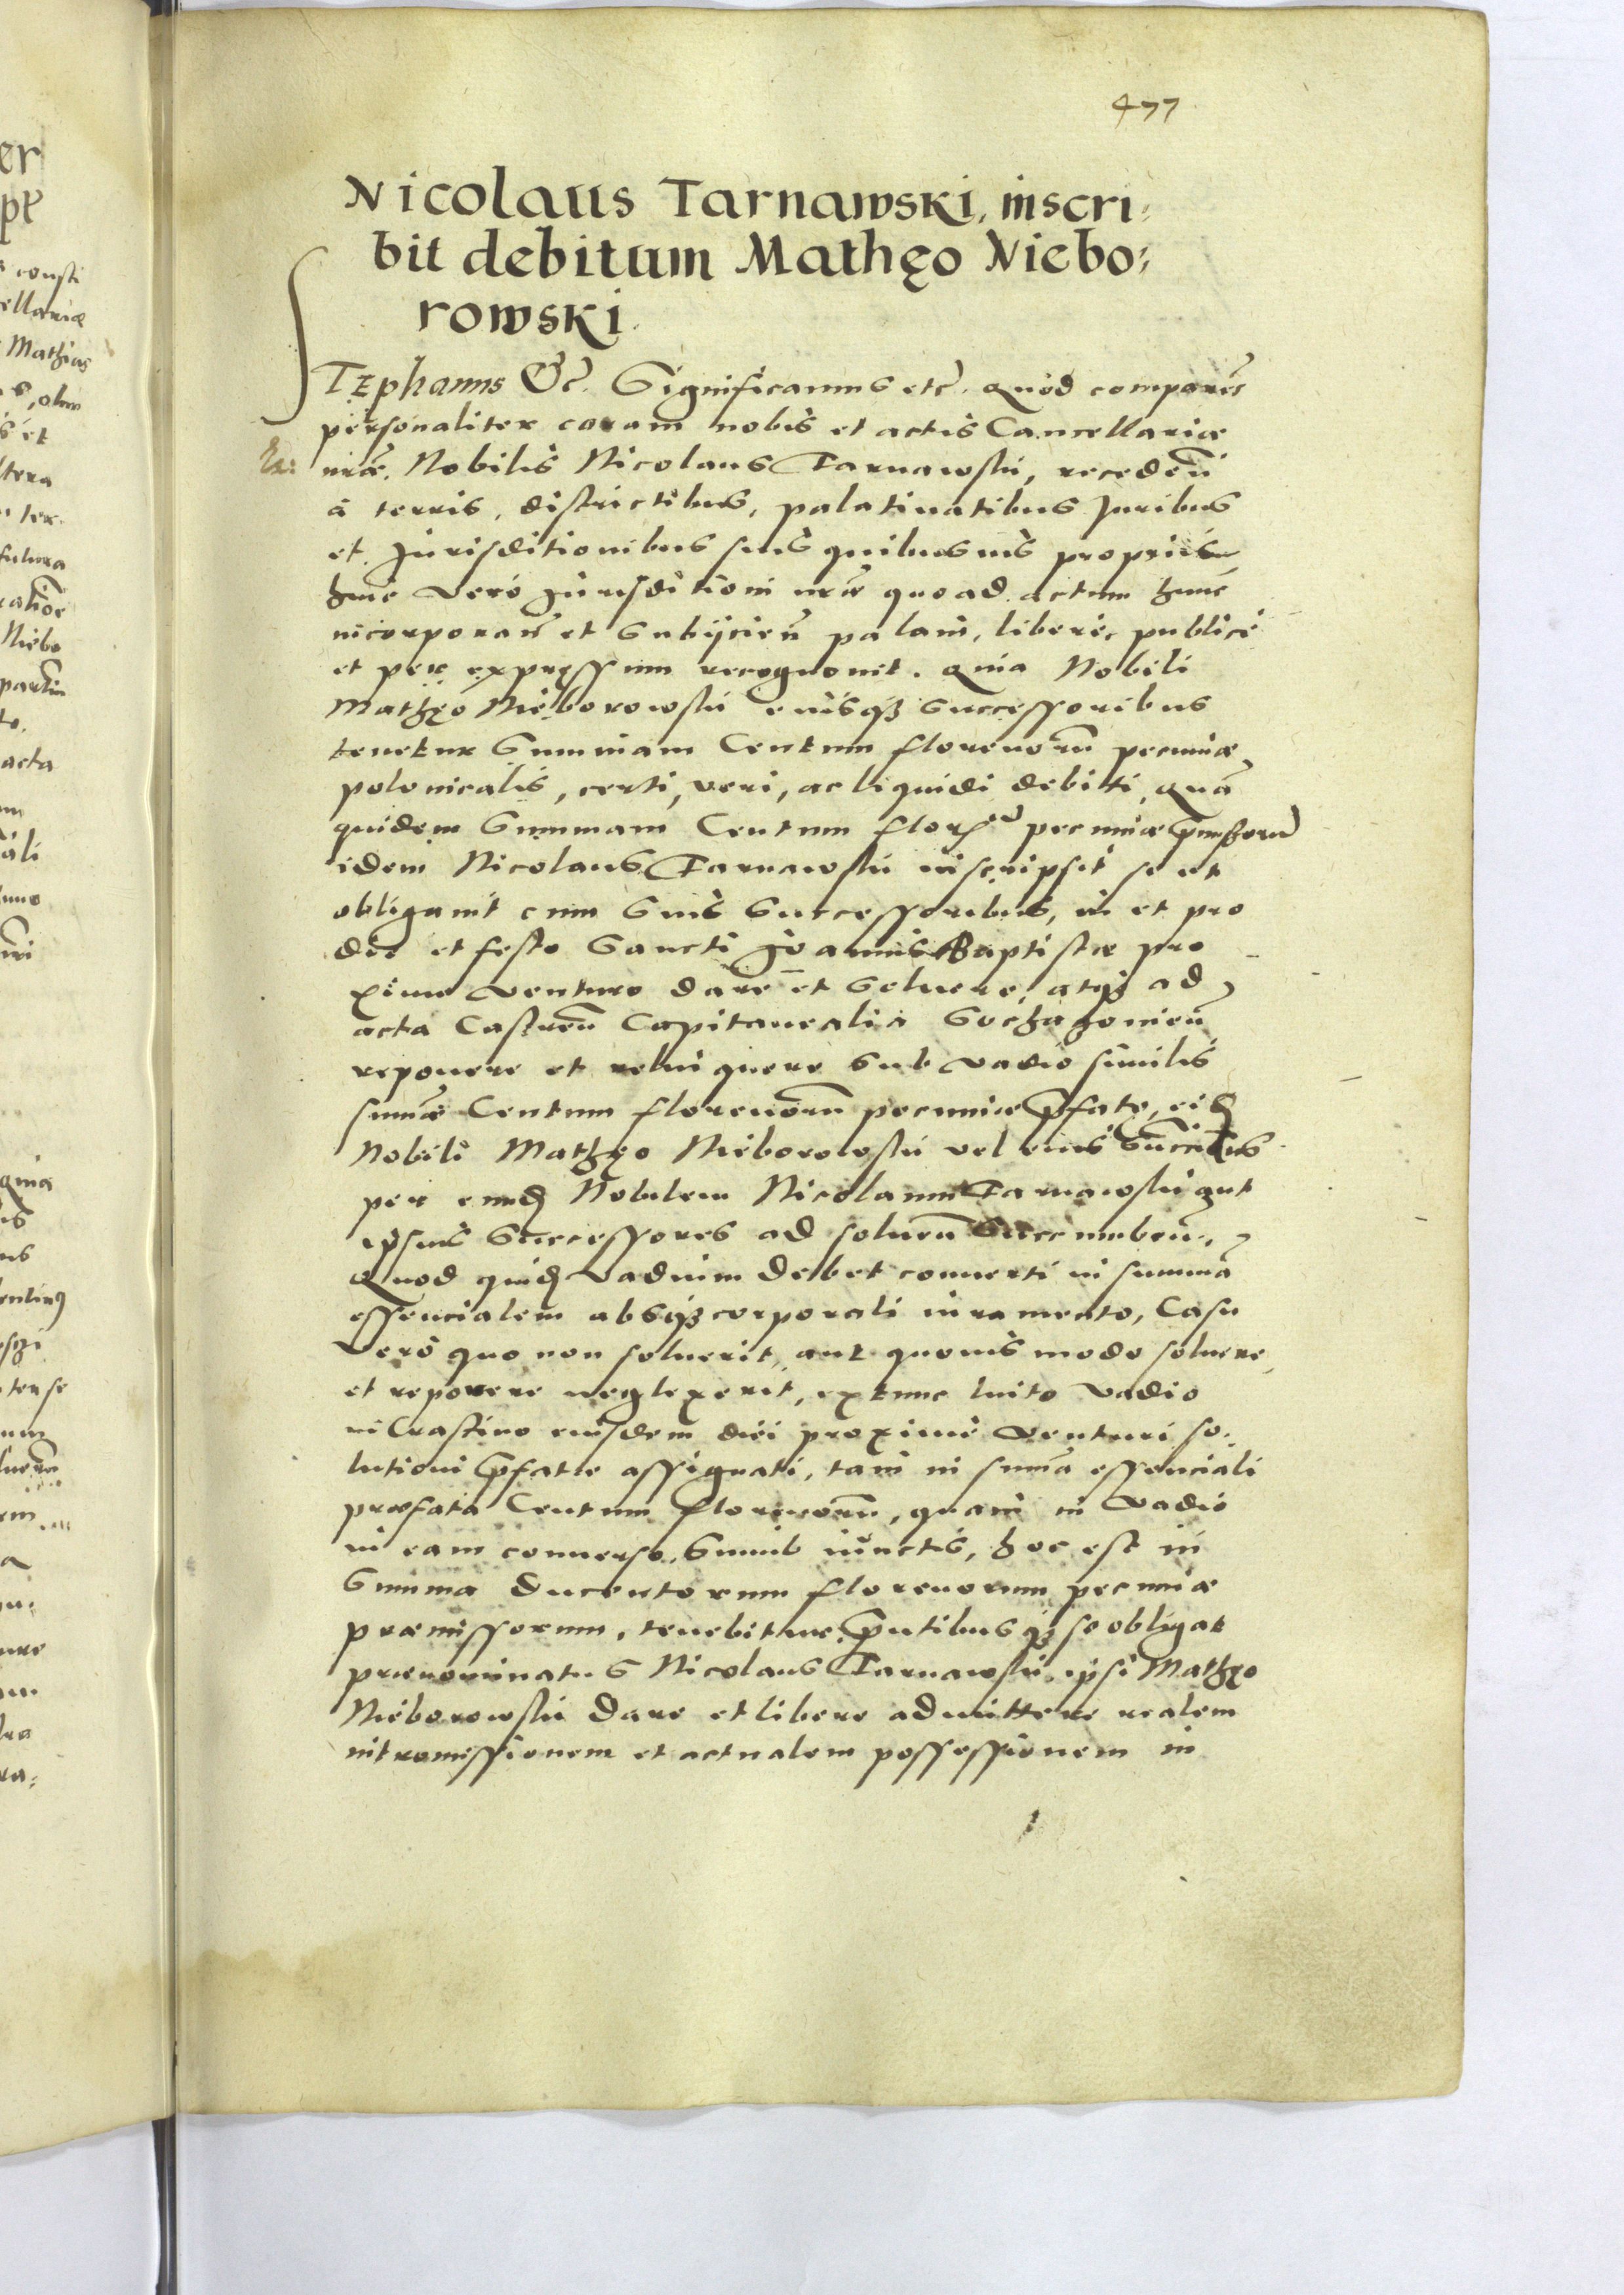 477
Nicolaus Tarnawski, inscri:
bit debitum Mathęo Niebo:
rowski.
STEphanus &c. Significamus etc. Quod comparẽs
personaliter coram nobis et actis Cancellariæ
nrãe. Nobilis Nicolaus Tarnawski, recedeñ
à terris, districtibus, palatinatibus Juribus
et Jurisditionibus suis quibusuis proprijs
huic vero Jurisditioni nrãe quo ad actum hunc
incorporañ et Subijcieñ palam, libere, publice
et per expręssum recognouit. Quia Nobili
Mathęo Nieborowski eiusq3 Successoribus
tenetur Summam Centum florenorũ pecuniæ
polonicalis, certi, veri, ac liquidi debiti, Quã
quidem Summam Centum flor. pecuniæ
idem Nicolaus Tarnawski inscripsit se et
obligauit cum Suis Successoribus, in et pro
die et festo Sancti Joannis Baptistæ pro
xime venturo dare et Soluere, atq3 ad
acta Castreñ Capitanealia Sochaczouieñ
reponere et relinquere Sub vadio similis
sumãe Centum florenorũ pecuniæ p̃fatę, eid
Nobili Mathęo Nieborowski vel eius
per eund Nobilem Nicolaum Tarnawski aut
ipsius Successores ad solueñ Succumbeñ.
Quod quid vadium debet conuerti in summã
essencialem absq3 corporali iuramento, Casu
vero quo non soluerit, aut quouis modo soluere
et reponere neglexerit, extunc luito vadio
in Crastino eiusdem diei proxime venturi so:
lutioni p̃fatæ assignati, tam in sumã essenciali
præfata Centum florenorũ, quam in vadio
in eam conuerso, Simul iunctis, hoc est in
Summa Ducentorum florenorum pecuniæ
præmissorum, tenebitur, p̃ntibusq3 se obligat
prænominatus Nicolaus Tarnawski, ipsi Mathęo
Nieborowski dare et libere admittere realem
intromissionem et actualem possessionem in
consti
ellariæ
Mathias
olim
et
tera
futura
Niebo
acta
quia